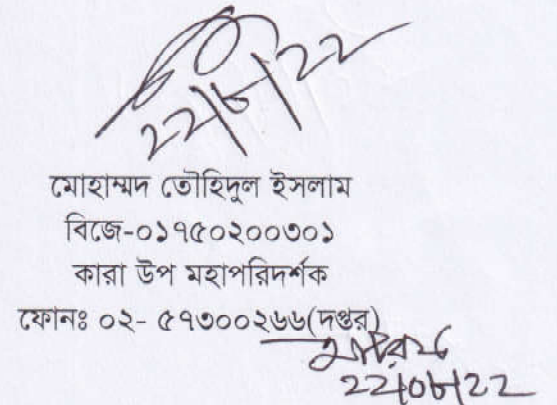 ২২/৮/২২
মোহাম্মদ তৌহিদুল ইসলাম
বিজে-০১৭৫০২০০৩০১
কারা উপ মহাপরিদর্শক
ফোনঃ ০২- ৫৭৩০০২৬৬(দপ্তর)
২২/০৮/২২